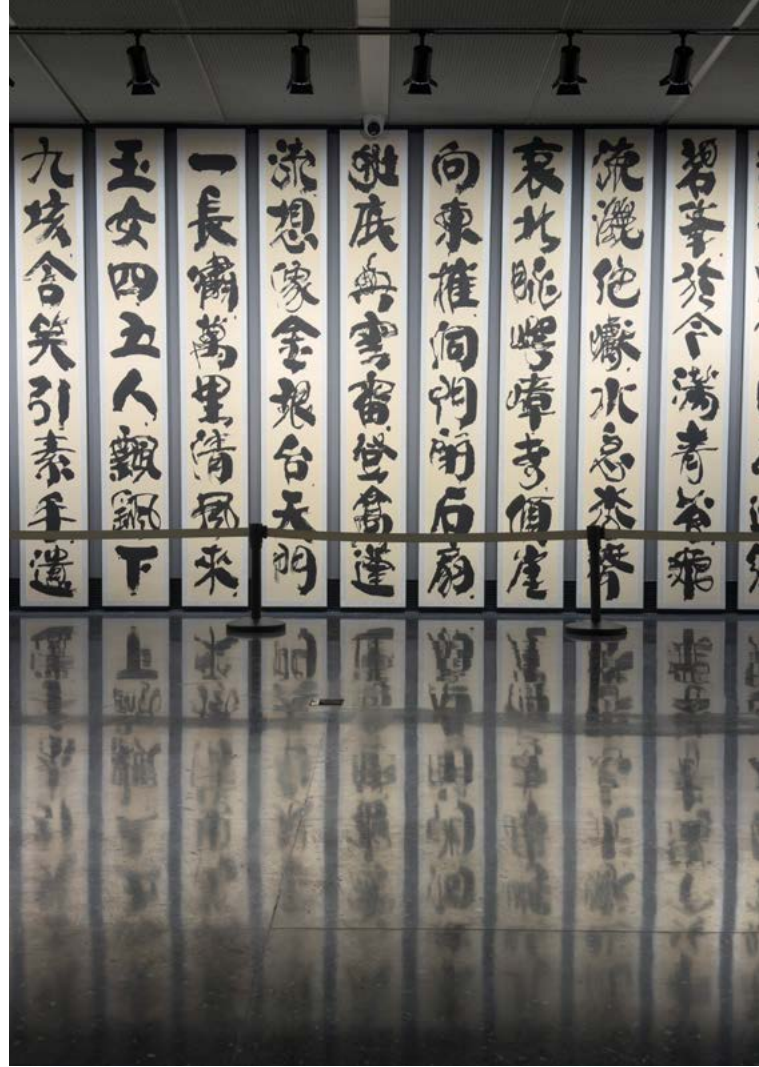 碧峯於今滿青苔飛
流灑絕巘水急松聲
哀北眺崿嶂奇傾崖
向東摧洞門閉石扇
地底興雲雷登高蓬
瀛想像金銀台天門
一長嘯萬里清風來
玉女四五人飄飖下
九垓含笑引素手遺